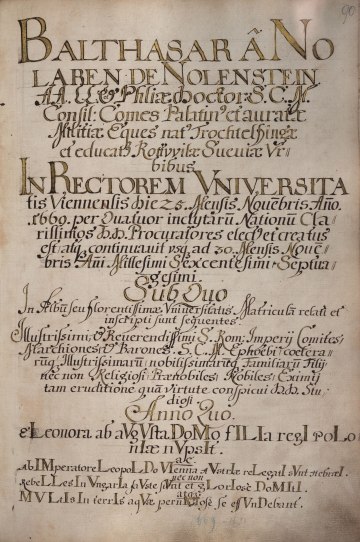 90
BALTHASAR Ã NO
LABEN DE NOLENSTEIN
AA. LL. & Philiæ Doctor S. C. M.
Consil: Comes Palatin⁹ et auratæ
Militiæ Eques nat⁹ Trochtelfingæ
et educat⁹ Rottwilæ Sueviæ Vr=
bibus
IN RECTOREM VNIVERSITA
tis Viennensis die 25. Mensis Novẽbris Año.
1669. per Quatuor inclytarũ Nationũ Cla=
rissimos DD. Procuratores elect⁹ et creatus
est, atq continuavit usq ad 30. Mensis Novẽ=
bris Añi Millesimi Sexcentesimi Septua=
gesimi.
Sub Quo
In Albũ seu florentissimæ Vniversitatis Matriculã relati et
inscripti sunt sequentes.
Illustrissimi, & Reverendissimi S. Rom: Imperij Comites,
Marchiones, & Barones, S. C. M. Ephoebi, coetera=
rũq Illustrissimarũ nobilissimarũq Familiarũ Filij
nec non Religiosi Prænobiles Nobiles Eximij
tam eruditione quã Virtute conspicui DD. Stu=
diosi
Anno Quo.
eLeonora ab aVgVsta DoMo fILIa regI poLo
niæ nVpsIt.
ac
Ab IMperatore LeopoLDo VIenna aVstriæ reLegatI sVnt Hebræl.
nec non
RebeLLes In VngarIa
atqq
MVLtIs In terrIs aqVæ